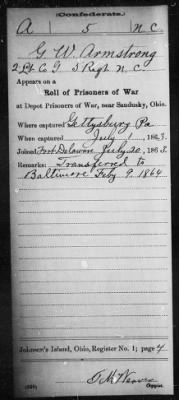 Confederate.
A 5 N C.
G. W. Armstrong
2 Lt. Co G. 5 Regt. N. C.
Appears on a
Roll of Prisoners of War
at Depot Prisoners of War, near Sandusky, Ohio.
Where captured Gettysburg Pa
When captured July 1, 1863.
Joined Fort Delaware July 20, 1863
Remarks: Transferred to
Baltimore Feby 9. 1864
Johnson's Island, Ohio, Register No. 1; page 4
Copyist.